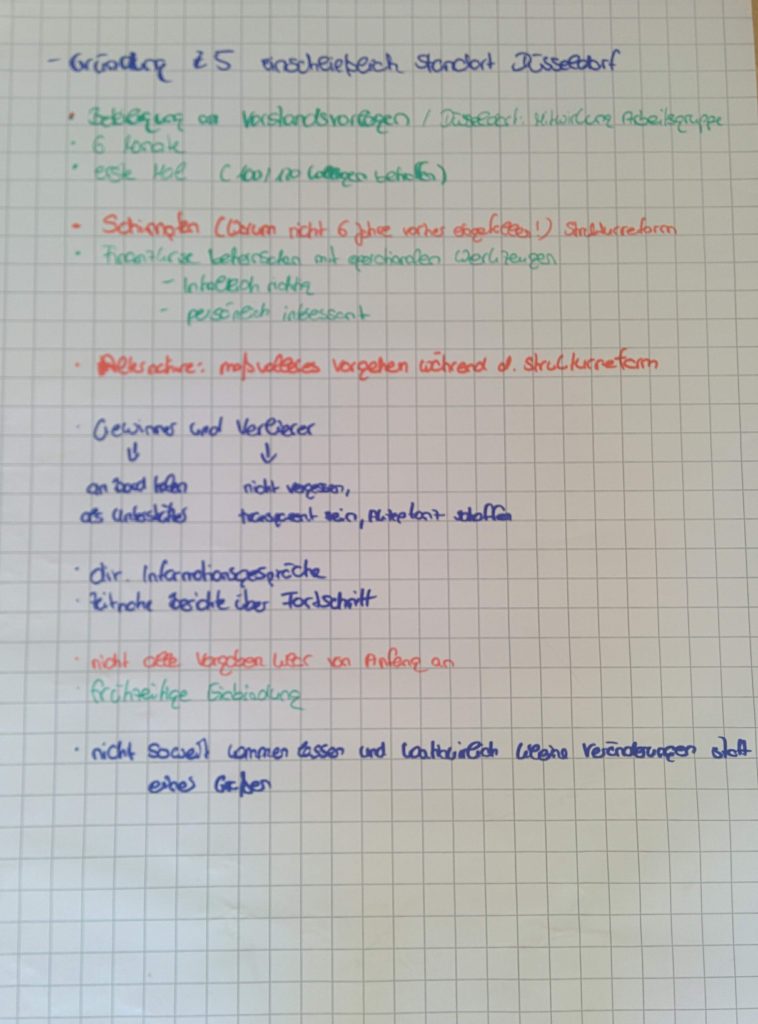 - Gründung IZ5 einschließlich Standort Düsseldorf
· Beteiligung an Vorstandsvorlagen / Düsseldorf: Mitwirkung Arbeitsgruppe
· 6 Monate
· erste Mal (100/120 Kollegen betroffen)
· Schimpfen (Warum nicht 6 Jahre vorher !) Strukturreform
· Finanzkrise beherrschen mit Werkzeugen
- Inhaltlich richtig
- persönlich interessant
· : maßvolleres vorgehen während d. Strukturreform
· Gewinner und Verlierer
↓ ↓
an Bord holen nicht vergessen,
als Unterstützer transparent sein, Akzeptanz schaffen
· dir. Informationsgespräche
· Zeitnahe Berichte über Fortschritt
· nicht alle Vorgaben klar von Anfang an
· frühzeitige Einbindung
· nicht soweit kommen lassen und kontinuierlich kleine Veränderungen statt
eines Großen